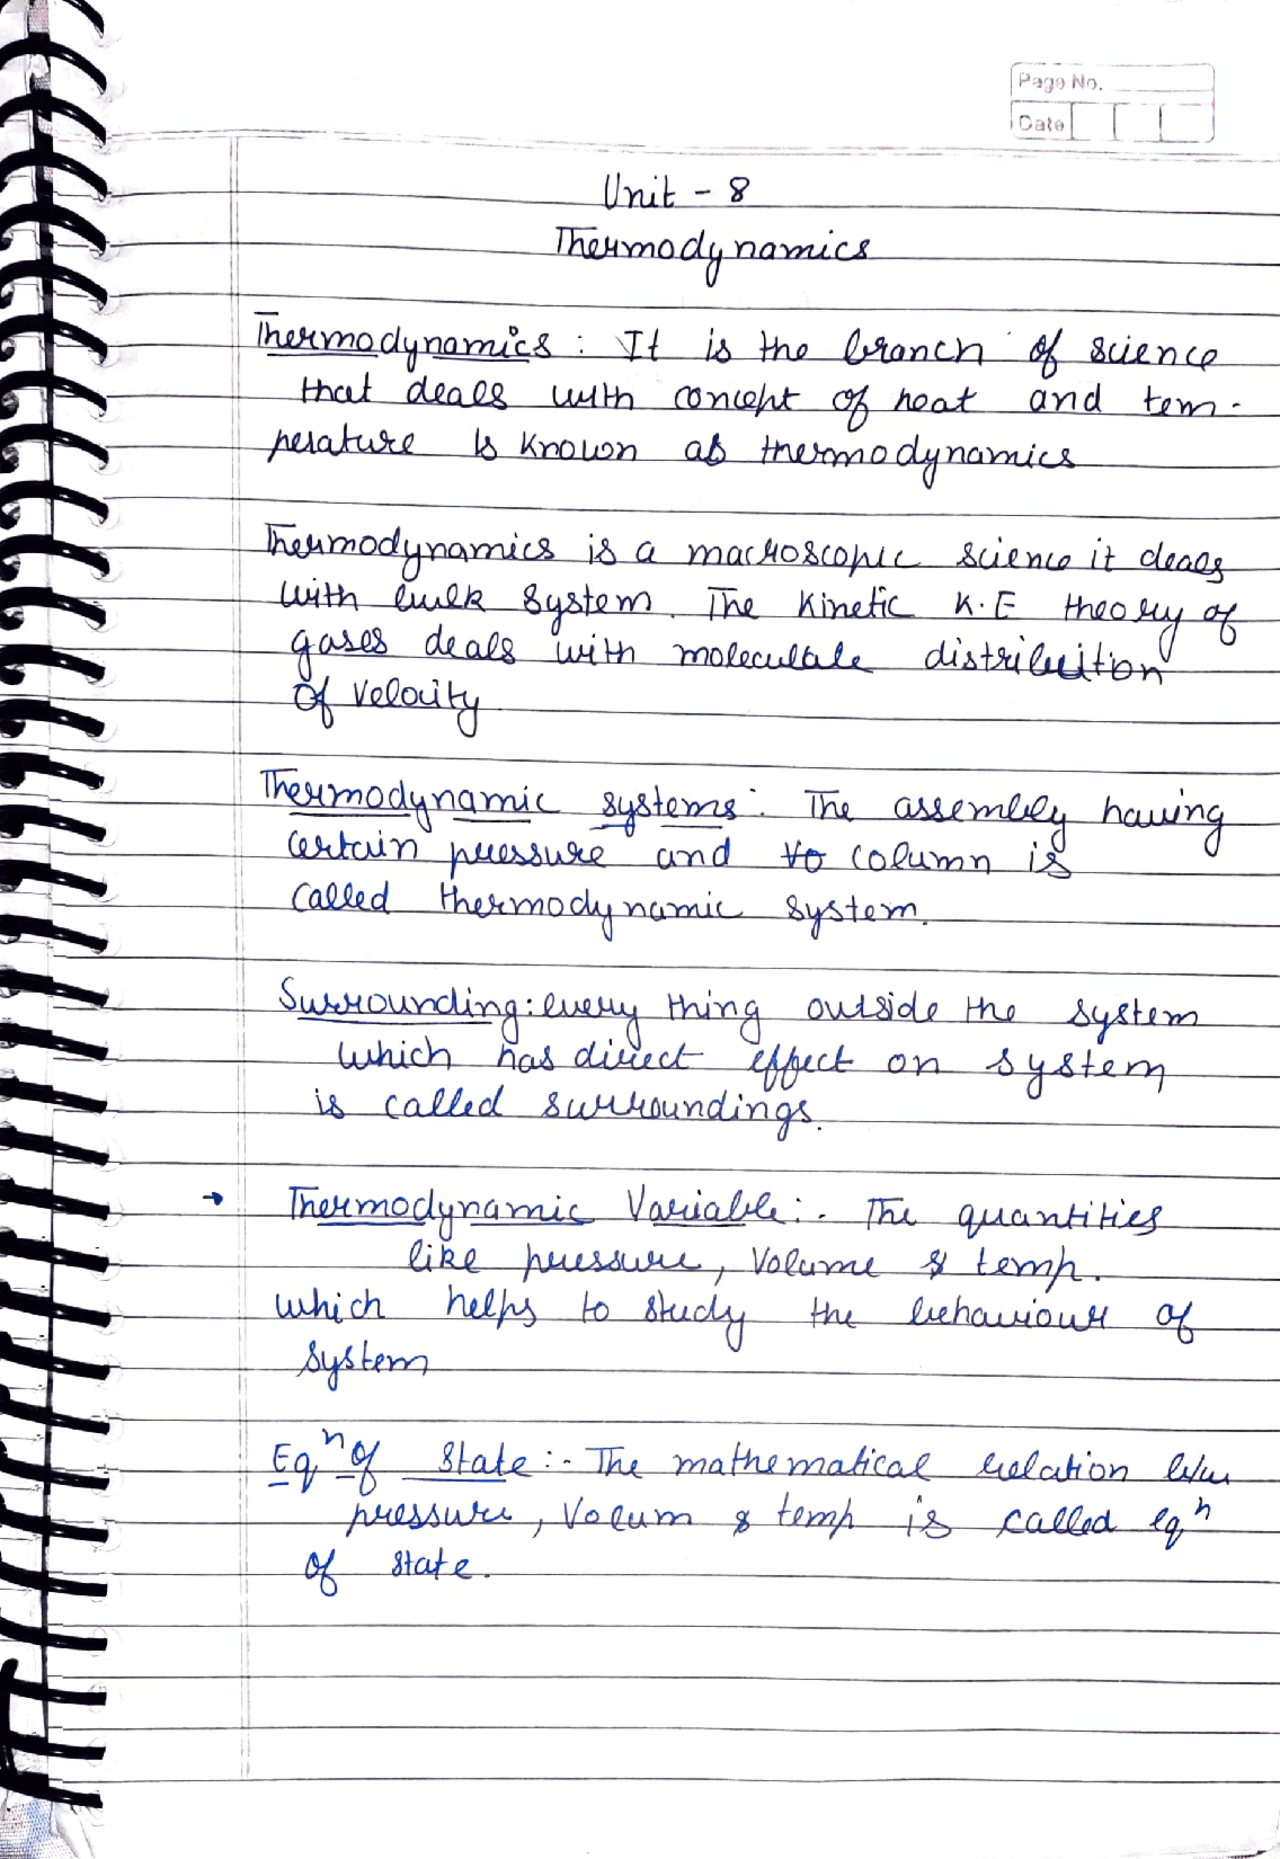 Page No.
Date
Unit - 8
Thermodynamics
Thermodynamics : It is the branch of science
that deals with concept of heat and tem-
perature is known as thermodynamics
Thermodynamics is a macroscopic science it deals
with bulk system. The Kinetic K.E theory of
gases deals with moleculale distribuition
of velocity
Thermodynamic systems : The assembly having
certain pressure and vo column is
called thermodynamic system.
Surrounding : every thing outside the system
which has direct effect on system
is called surroundings.
→ Thermodynamic Variable :- The quantities
like pressure, Volume & temp.
which helps to study the behaviour of
system
Eqⁿ of State :- The mathematical relation b/w
pressure, Volum & temp is called eqⁿ
of state.